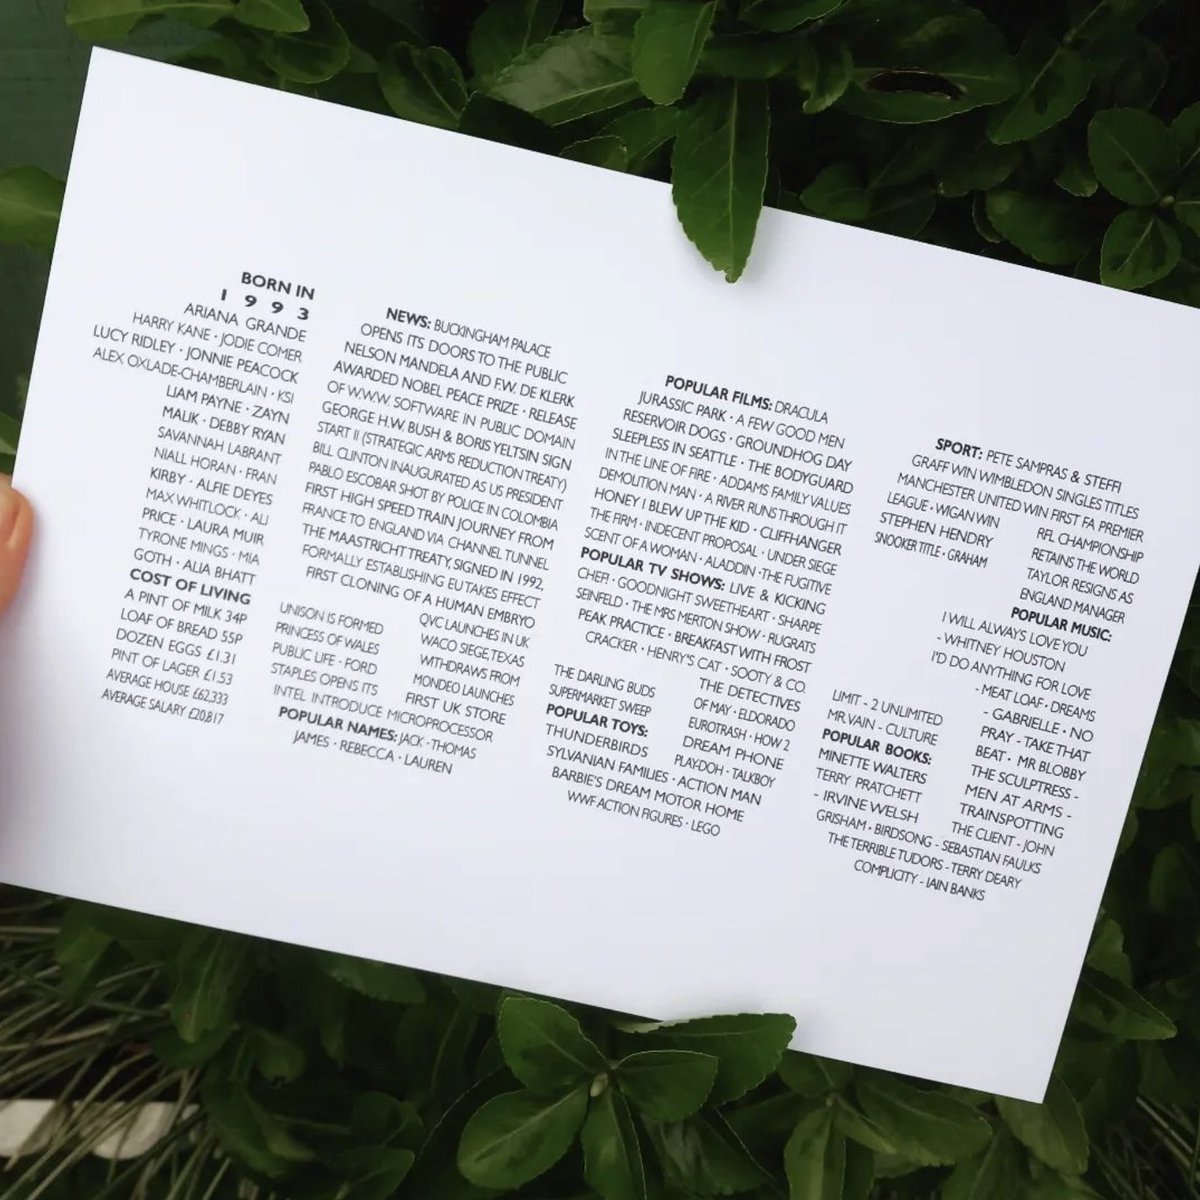 BORN IN
1 9 9 3
ARIANA GRANDE
HARRY KANE · JODIE COMER
LUCY RIDLEY · JONNIE PEACOCK
ALEX OXLADE-CHAMBERLAIN · KSI
LIAM PAYNE · ZAYN
MALIK · DEBBY RYAN
SAVANNAH LABRANT
NIALL HORAN · FRAN
KIRBY · ALFIE DEYES
MAX WHITLOCK · ALI
PRICE · LAURA MUIR
TYRONE MINGS · MIA
GOTH · ALIA BHATT
COST OF LIVING
A PINT OF MILK 34P
LOAF OF BREAD 55P
DOZEN EGGS £1.31
PINT OF LAGER £1.53
AVERAGE HOUSE £62,333
AVERAGE SALARY £20,817
NEWS: BUCKINGHAM PALACE
OPENS ITS DOORS TO THE PUBLIC
NELSON MANDELA AND F.W. DE KLERK
AWARDED NOBEL PEACE PRIZE · RELEASE
OF W.W.W. SOFTWARE IN PUBLIC DOMAIN
GEORGE H.W. BUSH & BORIS YELTSIN SIGN
START II (STRATEGIC ARMS REDUCTION TREATY)
BILL CLINTON INAUGURATED AS US PRESIDENT
PABLO ESCOBAR SHOT BY POLICE IN COLOMBIA
FIRST HIGH SPEED TRAIN JOURNEY FROM
FRANCE TO ENGLAND VIA CHANNEL TUNNEL
THE MAASTRICHT TREATY, SIGNED IN 1992,
FORMALLY ESTABLISHING EU TAKES EFFECT
FIRST CLONING OF A HUMAN EMBRYO
QVC LAUNCHES IN UK
UNISON IS FORMED WACO SIEGE, TEXAS
PRINCESS OF WALES WITHDRAWS FROM
PUBLIC LIFE · FORD MONDEO LAUNCHES
STAPLES OPENS ITS FIRST UK STORE
INTEL INTRODUCE MICROPROCESSOR
POPULAR NAMES: JACK · THOMAS
JAMES · REBECCA · LAUREN
POPULAR FILMS: DRACULA
JURASSIC PARK · A FEW GOOD MEN
RESERVOIR DOGS · GROUNDHOG DAY
SLEEPLESS IN SEATTLE · THE BODYGUARD
IN THE LINE OF FIRE · ADDAMS FAMILY VALUES
DEMOLITION MAN · A RIVER RUNS THROUGH IT
HONEY I BLEW UP THE KID · CLIFFHANGER
THE FIRM · INDECENT PROPOSAL · UNDER SIEGE
SCENT OF A WOMAN · ALADDIN · THE FUGITIVE
POPULAR TV SHOWS: LIVE & KICKING
CHEF · GOODNIGHT SWEETHEART · SHARPE
SEINFELD · THE MRS MERTON SHOW · RUGRATS
PEAK PRACTICE · BREAKFAST WITH FROST
CRACKER · HENRY'S CAT · SOOTY & CO.
THE DETECTIVES
THE DARLING BUDS OF MAY · ELDORADO
SUPERMARKET SWEEP EUROTRASH · HOW 2
POPULAR TOYS: DREAM PHONE
THUNDERBIRDS PLAY-DOH · TALKBOY
SYLVANIAN FAMILIES · ACTION MAN
BARBIE'S DREAM MOTOR HOME
WWF ACTION FIGURES · LEGO
SPORT: PETE SAMPRAS & STEFFI
GRAFF WIN WIMBLEDON SINGLES TITLES
MANCHESTER UNITED WIN FIRST FA PREMIER
LEAGUE · WIGAN WIN RFL CHAMPIONSHIP
STEPHEN HENDRY RETAINS THE WORLD
SNOOKER TITLE · GRAHAM TAYLOR RESIGNS AS
ENGLAND MANAGER
POPULAR MUSIC:
I WILL ALWAYS LOVE YOU
- WHITNEY HOUSTON
I'D DO ANYTHING FOR LOVE
- MEAT LOAF · DREAMS
- GABRIELLE · NO
LIMIT - 2 UNLIMITED PRAY - TAKE THAT
MR VAIN - CULTURE BEAT · MR BLOBBY
POPULAR BOOKS: THE SCULPTRESS -
MINETTE WALTERS MEN AT ARMS -
TERRY PRATCHETT TRAINSPOTTING
- IRVINE WELSH THE CLIENT - JOHN
GRISHAM · BIRDSONG - SEBASTIAN FAULKS
THE TERRIBLE TUDORS - TERRY DEARY
COMPLICITY - IAIN BANKS